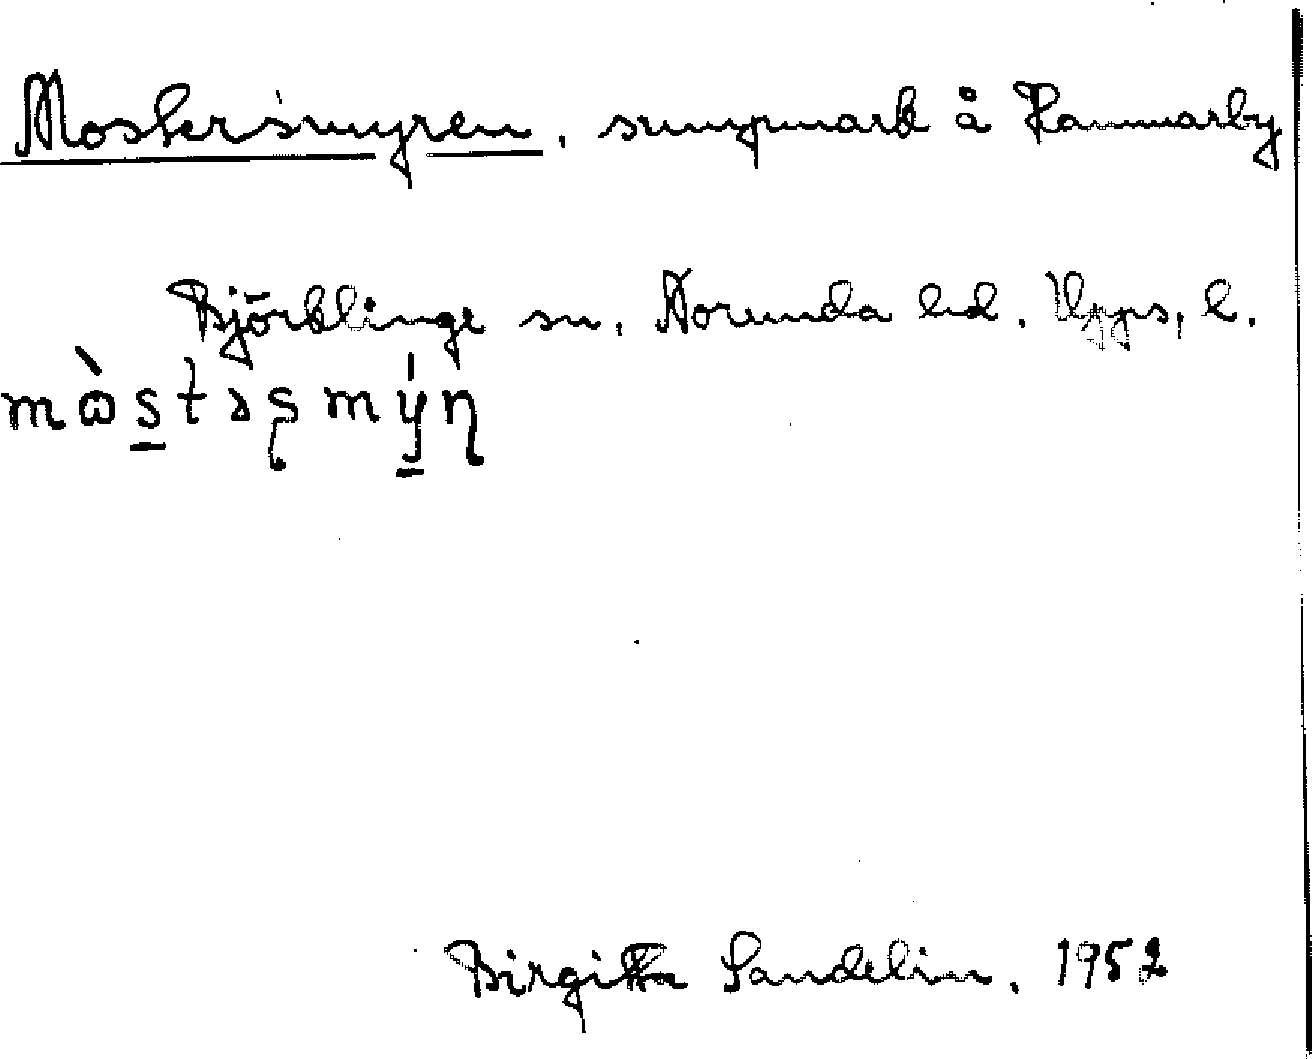 Mostersmyren, sumpmark å Hammarby
Björklinge sn, Norunda hd. Upps. l.
mɷ̀stəʂmýn
Birgitta Sandelin, 1952